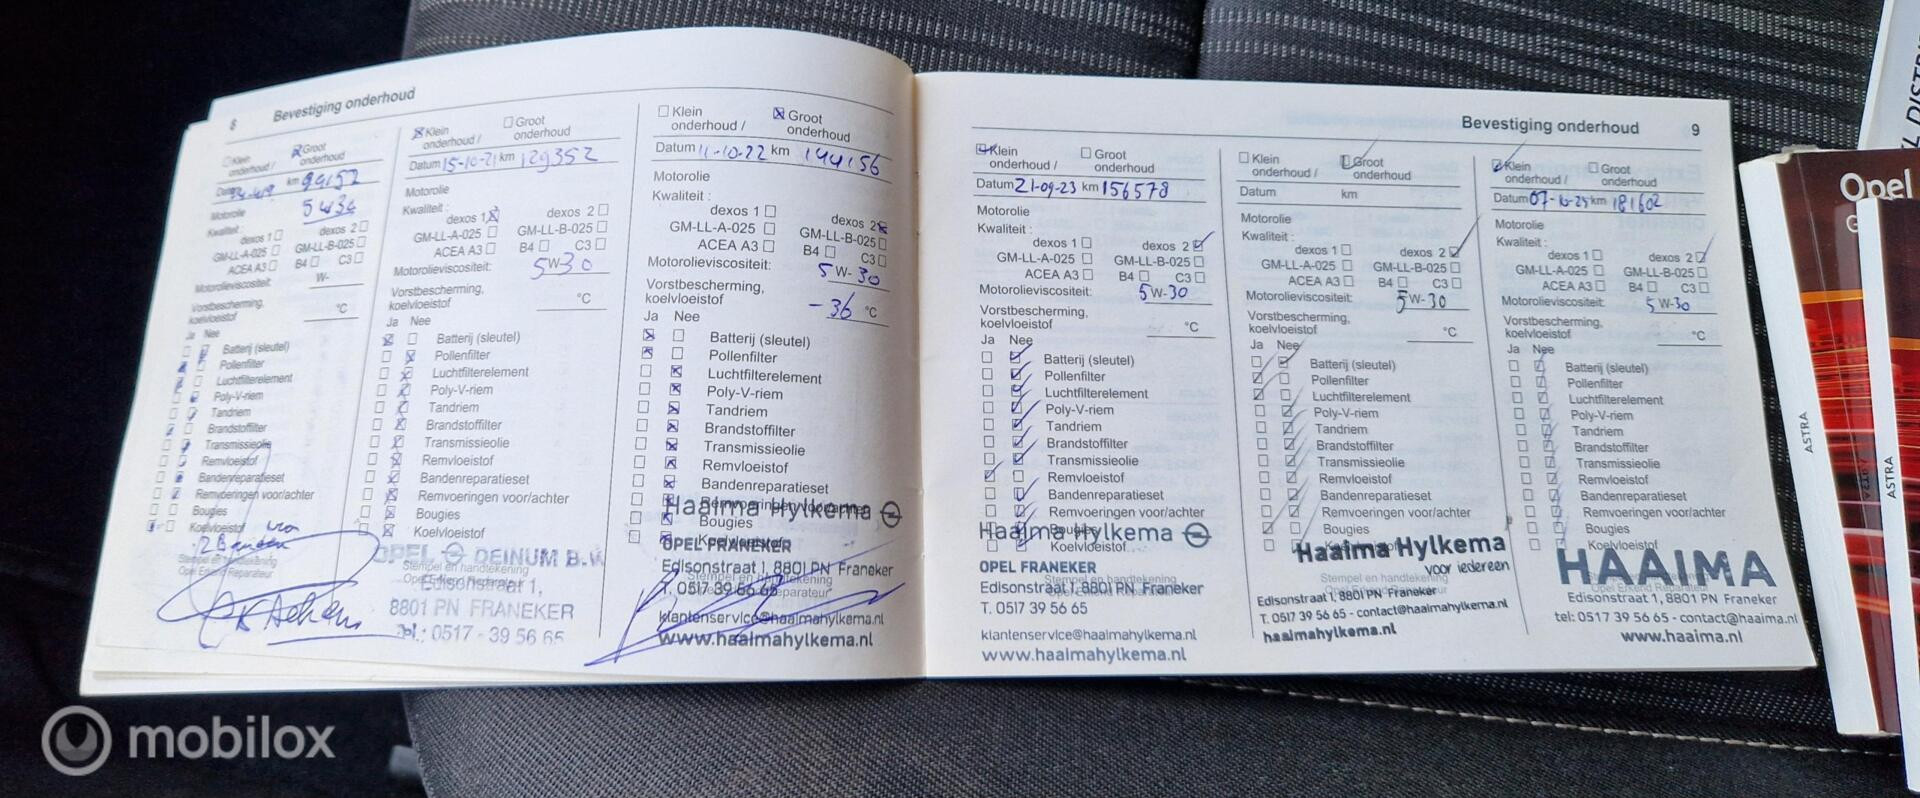 8 Bevestiging onderhoud
Klein onderhoud / Groot onderhoud
km 99152
Motorolie 5w30
Kwaliteit :
dexos 1 dexos 2
GM-LL-A-025 GM-LL-B-025
ACEA A3 B4 C3
Motorolieviscositeit: W-
Vorstbescherming,
koelvloeistof °C
Ja Nee
Batterij (sleutel)
Pollenfilter
Luchtfilterelement
Poly-V-riem
Tandriem
Brandstoffilter
Transmissieolie
Remvloeistof
Bandenreparatieset
Remvoeringen voor/achter
Bougies
Koelvloeistof
Stempel en handtekening
Opel Erkend Reparateur
Klein onderhoud / Groot onderhoud
Datum 15-10-21 km 129352
Motorolie
Kwaliteit :
dexos 1 dexos 2
GM-LL-A-025 GM-LL-B-025
ACEA A3 B4 C3
Motorolieviscositeit: 5W30
Vorstbescherming,
koelvloeistof °C
Ja Nee
Batterij (sleutel)
Pollenfilter
Luchtfilterelement
Poly-V-riem
Tandriem
Brandstoffilter
Transmissieolie
Remvloeistof
Bandenreparatieset
Remvoeringen voor/achter
Bougies
Koelvloeistof
OPEL DEINUM B.V.
Stempel en handtekening
Opel Erkend Reparateur
Edisonstraat 1,
8801 PN FRANEKER
Tel.: 0517 - 39 56 65
Klein onderhoud / Groot onderhoud
Datum 11-10-22 km 144156
Motorolie
Kwaliteit :
dexos 1 dexos 2
GM-LL-A-025 GM-LL-B-025
ACEA A3 B4 C3
Motorolieviscositeit: 5W-30
Vorstbescherming,
koelvloeistof -36 °C
Ja Nee
Batterij (sleutel)
Pollenfilter
Luchtfilterelement
Poly-V-riem
Tandriem
Brandstoffilter
Transmissieolie
Remvloeistof
Bandenreparatieset
Remvoeringen voor/achter
Haaima Hylkema
Bougies
Koelvloeistof
OPEL FRANEKER
Edisonstraat 1, 8801 PN Franeker
Stempel en handtekening
T. 0517 39 56 65
Opel Erkend Reparateur
klantenservice@haaimahylkema.nl
www.haaimahylkema.nl
Bevestiging onderhoud 9
Klein onderhoud / Groot onderhoud
Datum 21-09-23 km 156578
Motorolie
Kwaliteit :
dexos 1 dexos 2
GM-LL-A-025 GM-LL-B-025
ACEA A3 B4 C3
Motorolieviscositeit: 5W-30
Vorstbescherming,
koelvloeistof °C
Ja Nee
Batterij (sleutel)
Pollenfilter
Luchtfilterelement
Poly-V-riem
Tandriem
Brandstoffilter
Transmissieolie
Remvloeistof
Bandenreparatieset
Remvoeringen voor/achter
Bougies
Haaima Hylkema
Koelvloeistof
OPEL FRANEKER
Stempel en handtekening
Edisonstraat 1, 8801 PN Franeker
Opel Erkend Reparateur
T. 0517 39 56 65
klantenservice@haaimahylkema.nl
www.haaimahylkema.nl
Klein onderhoud / Groot onderhoud
Datum km
Motorolie
Kwaliteit :
dexos 1 dexos 2
GM-LL-A-025 GM-LL-B-025
ACEA A3 B4 C3
Motorolieviscositeit: 5W-30
Vorstbescherming,
koelvloeistof °C
Ja Nee
Batterij (sleutel)
Pollenfilter
Luchtfilterelement
Poly-V-riem
Tandriem
Brandstoffilter
Transmissieolie
Remvloeistof
Bandenreparatieset
Remvoeringen voor/achter
Bougies
Koelvloeistof
Haaima Hylkema
voor iedereen
Stempel en handtekening
Opel Erkend Reparateur
Edisonstraat 1, 8801 PN Franeker
T. 0517 39 56 65 - contact@haaimahylkema.nl
haaimahylkema.nl
Klein onderhoud / Groot onderhoud
Datum km 181602
Motorolie
Kwaliteit :
dexos 1 dexos 2
GM-LL-A-025 GM-LL-B-025
ACEA A3 B4 C3
Motorolieviscositeit: 5W-30
Vorstbescherming,
koelvloeistof °C
Ja Nee
Batterij (sleutel)
Pollenfilter
Luchtfilterelement
Poly-V-riem
Tandriem
Brandstoffilter
Transmissieolie
Remvloeistof
Bandenreparatieset
Remvoeringen voor/achter
Bougies
Koelvloeistof
HAAIMA
Stempel en handtekening
Opel Erkend Reparateur
Edisonstraat 1, 8801 PN Franeker
tel: 0517 39 56 65 - contact@haaima.nl
www.haaima.nl
Opel
ASTRA
ASTRA
mobilox